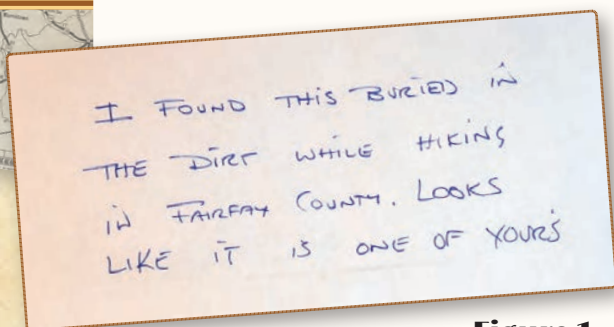 I FOUND THIS BURIED IN
THE DIRT WHILE HIKING
IN FAIRFAX COUNTY. LOOKS
LIKE IT IS ONE OF YOURS
Figure 1